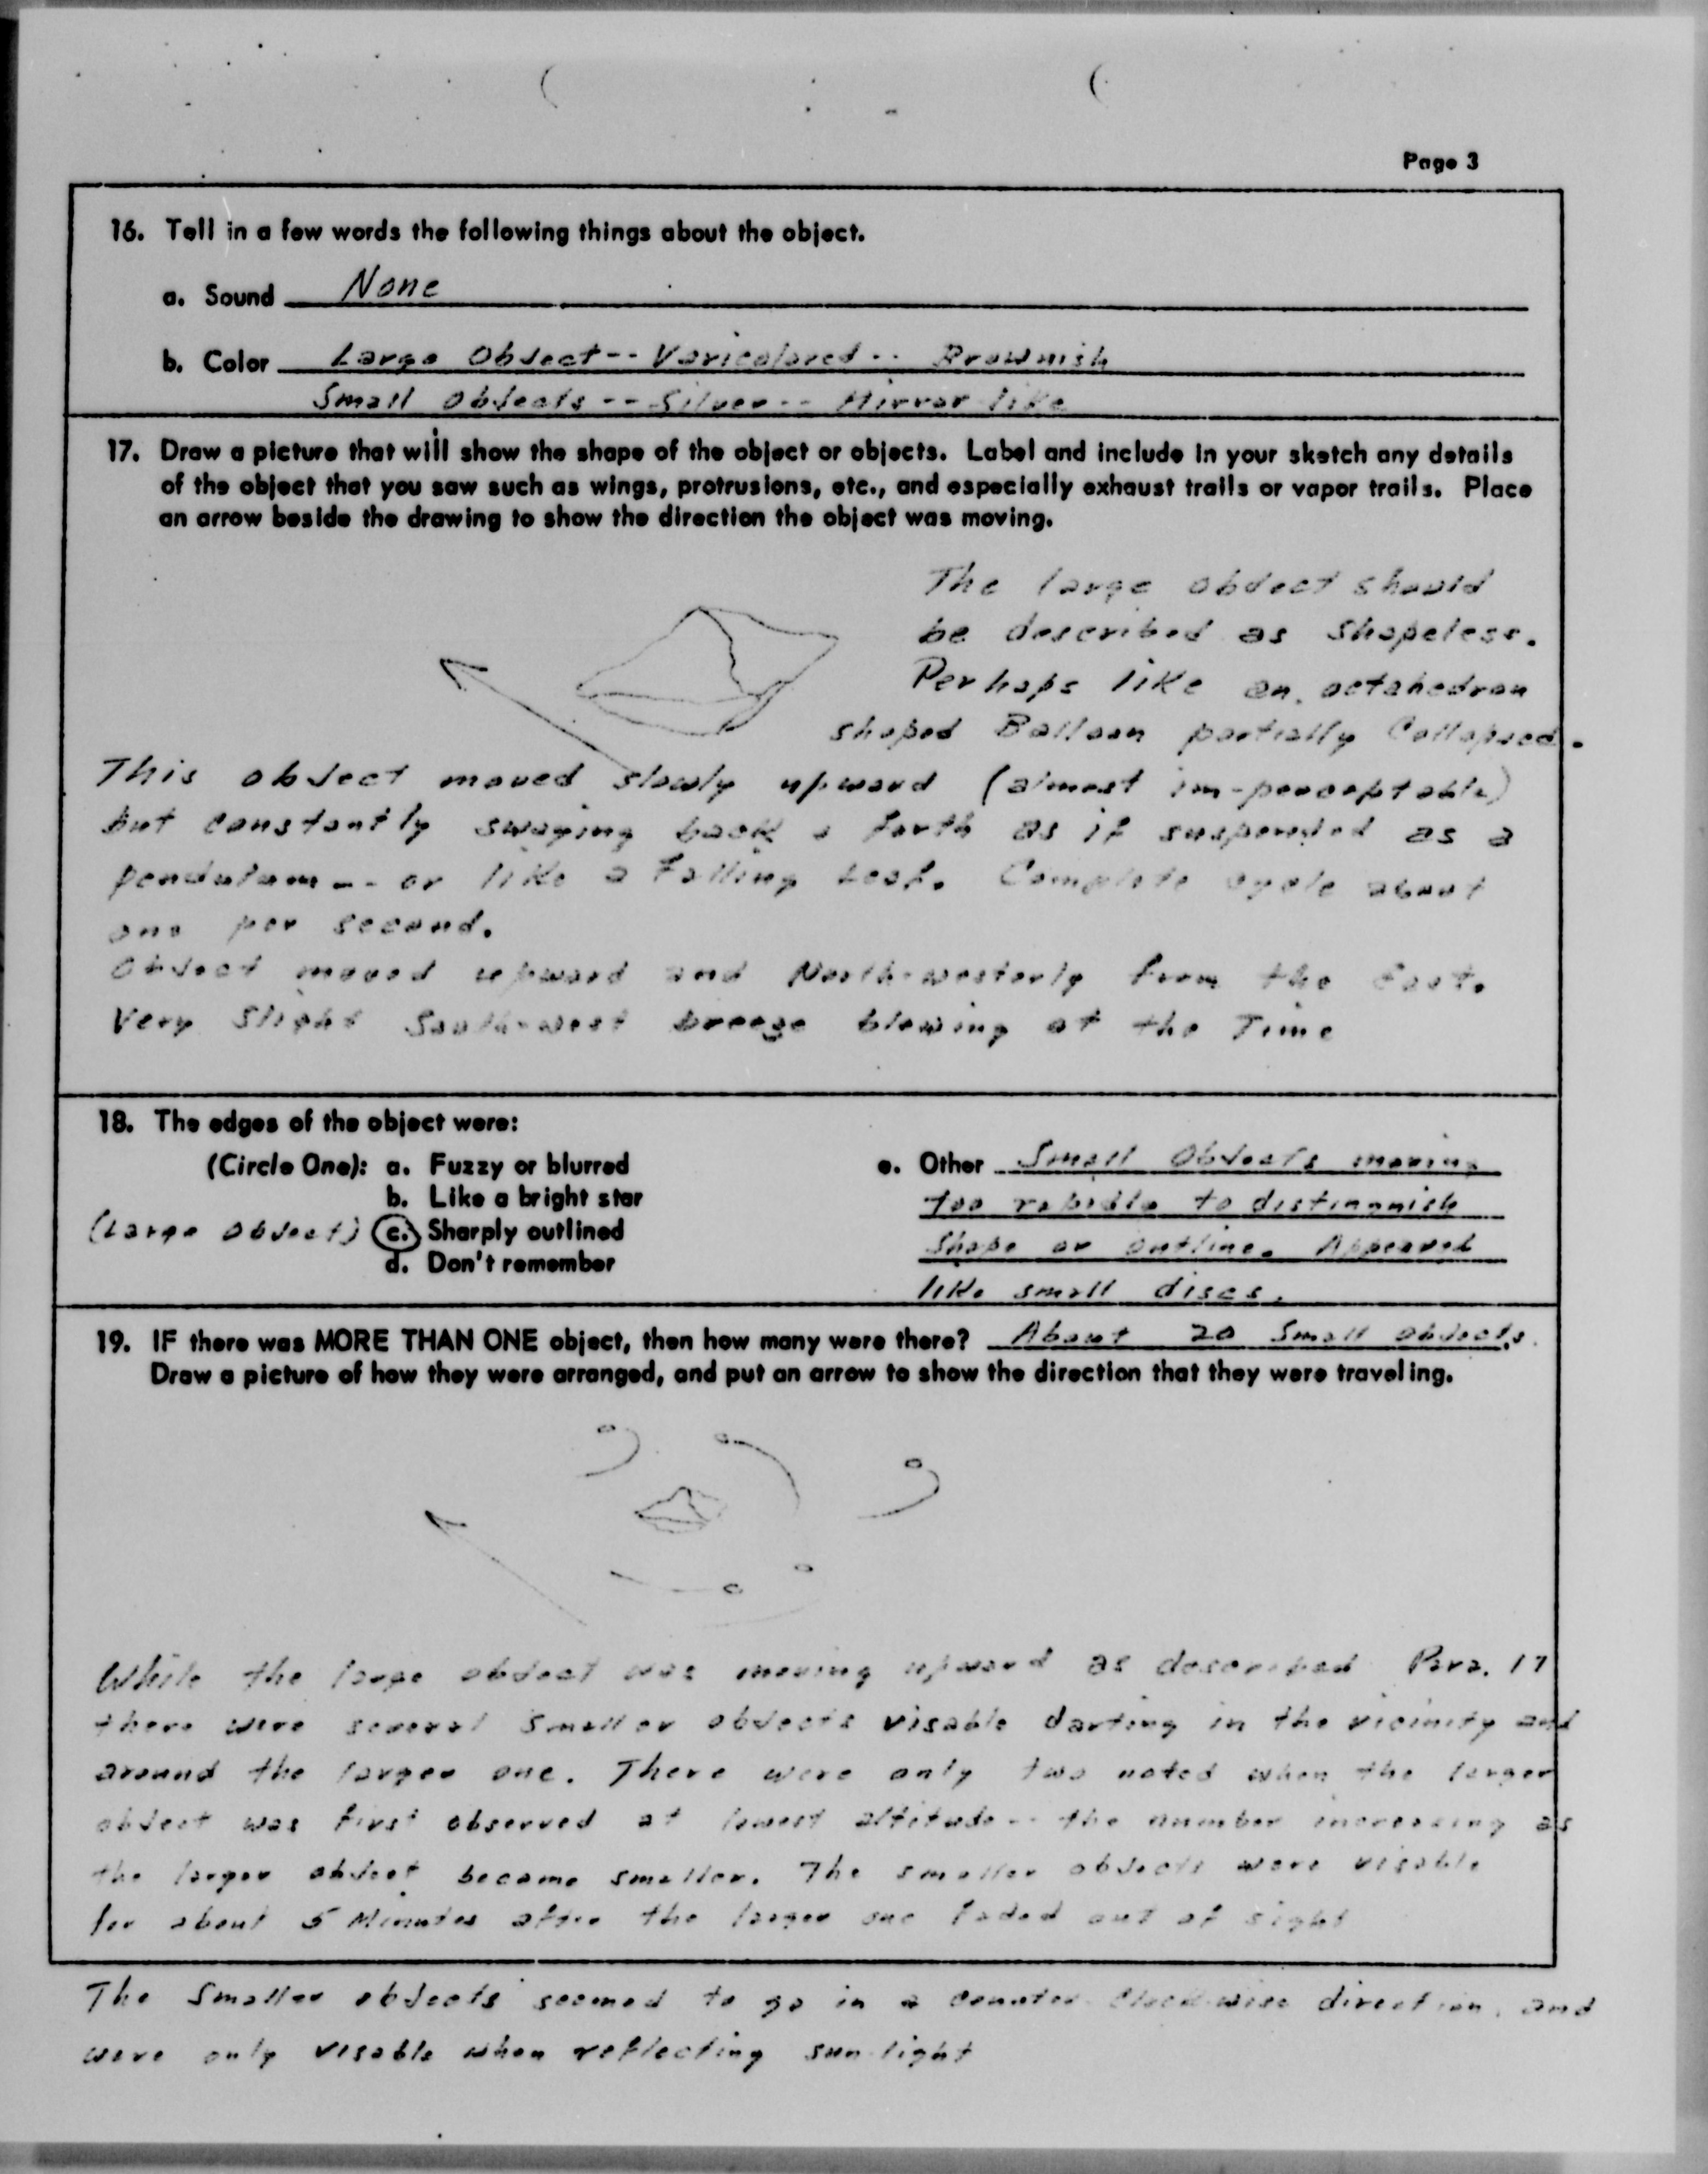 Page 3
16. Tell in a few words the following things about the object.
a. Sound None
b. Color Large Object -- Varicolored -- Brownish
Small Objects -- Silver -- Mirror like
17. Draw a picture that will show the shape of the object or objects. Label and include in your sketch any details
of the object that you saw such as wings, protrusions, etc., and especially exhaust trails or vapor trails. Place
an arrow beside the drawing to show the direction the object was moving.
The large object should
be described as shapeless.
Perhaps like an octahedron
shaped Balloon partially Collapsed.
This object moved slowly upward (almost im-perceptable)
but constantly swaying back & forth as if suspended as a
pendulum -- or like a Falling Leaf. Complete cycle about
one per second.
Object moved upward and North-westerly from the East.
Very Slight South-west breeze blowing at the Time
18. The edges of the object were:
(Circle One): a. Fuzzy or blurred
b. Like a bright star
(Large Object) c. Sharply outlined
d. Don't remember
e. Other Small Objects moving
too rapidly to distinguish
shape or outline. Appeared
like small discs.
19. IF there was MORE THAN ONE object, then how many were there? About 20 Small objects.
Draw a picture of how they were arranged, and put an arrow to show the direction that they were traveling.
While the large object was moving upward as described Para. 17
there were several smaller objects visable darting in the vicinity and
around the larger one. There were only two noted when the larger
object was first observed at lowest altitude -- the number increasing as
the larger object became smaller. The smaller objects were visable
for about 5 Minutes after the larger one faded out of sight
The Smaller objects seemed to go in a counter-clock-wise direction, and
were only visable when reflecting sun-light